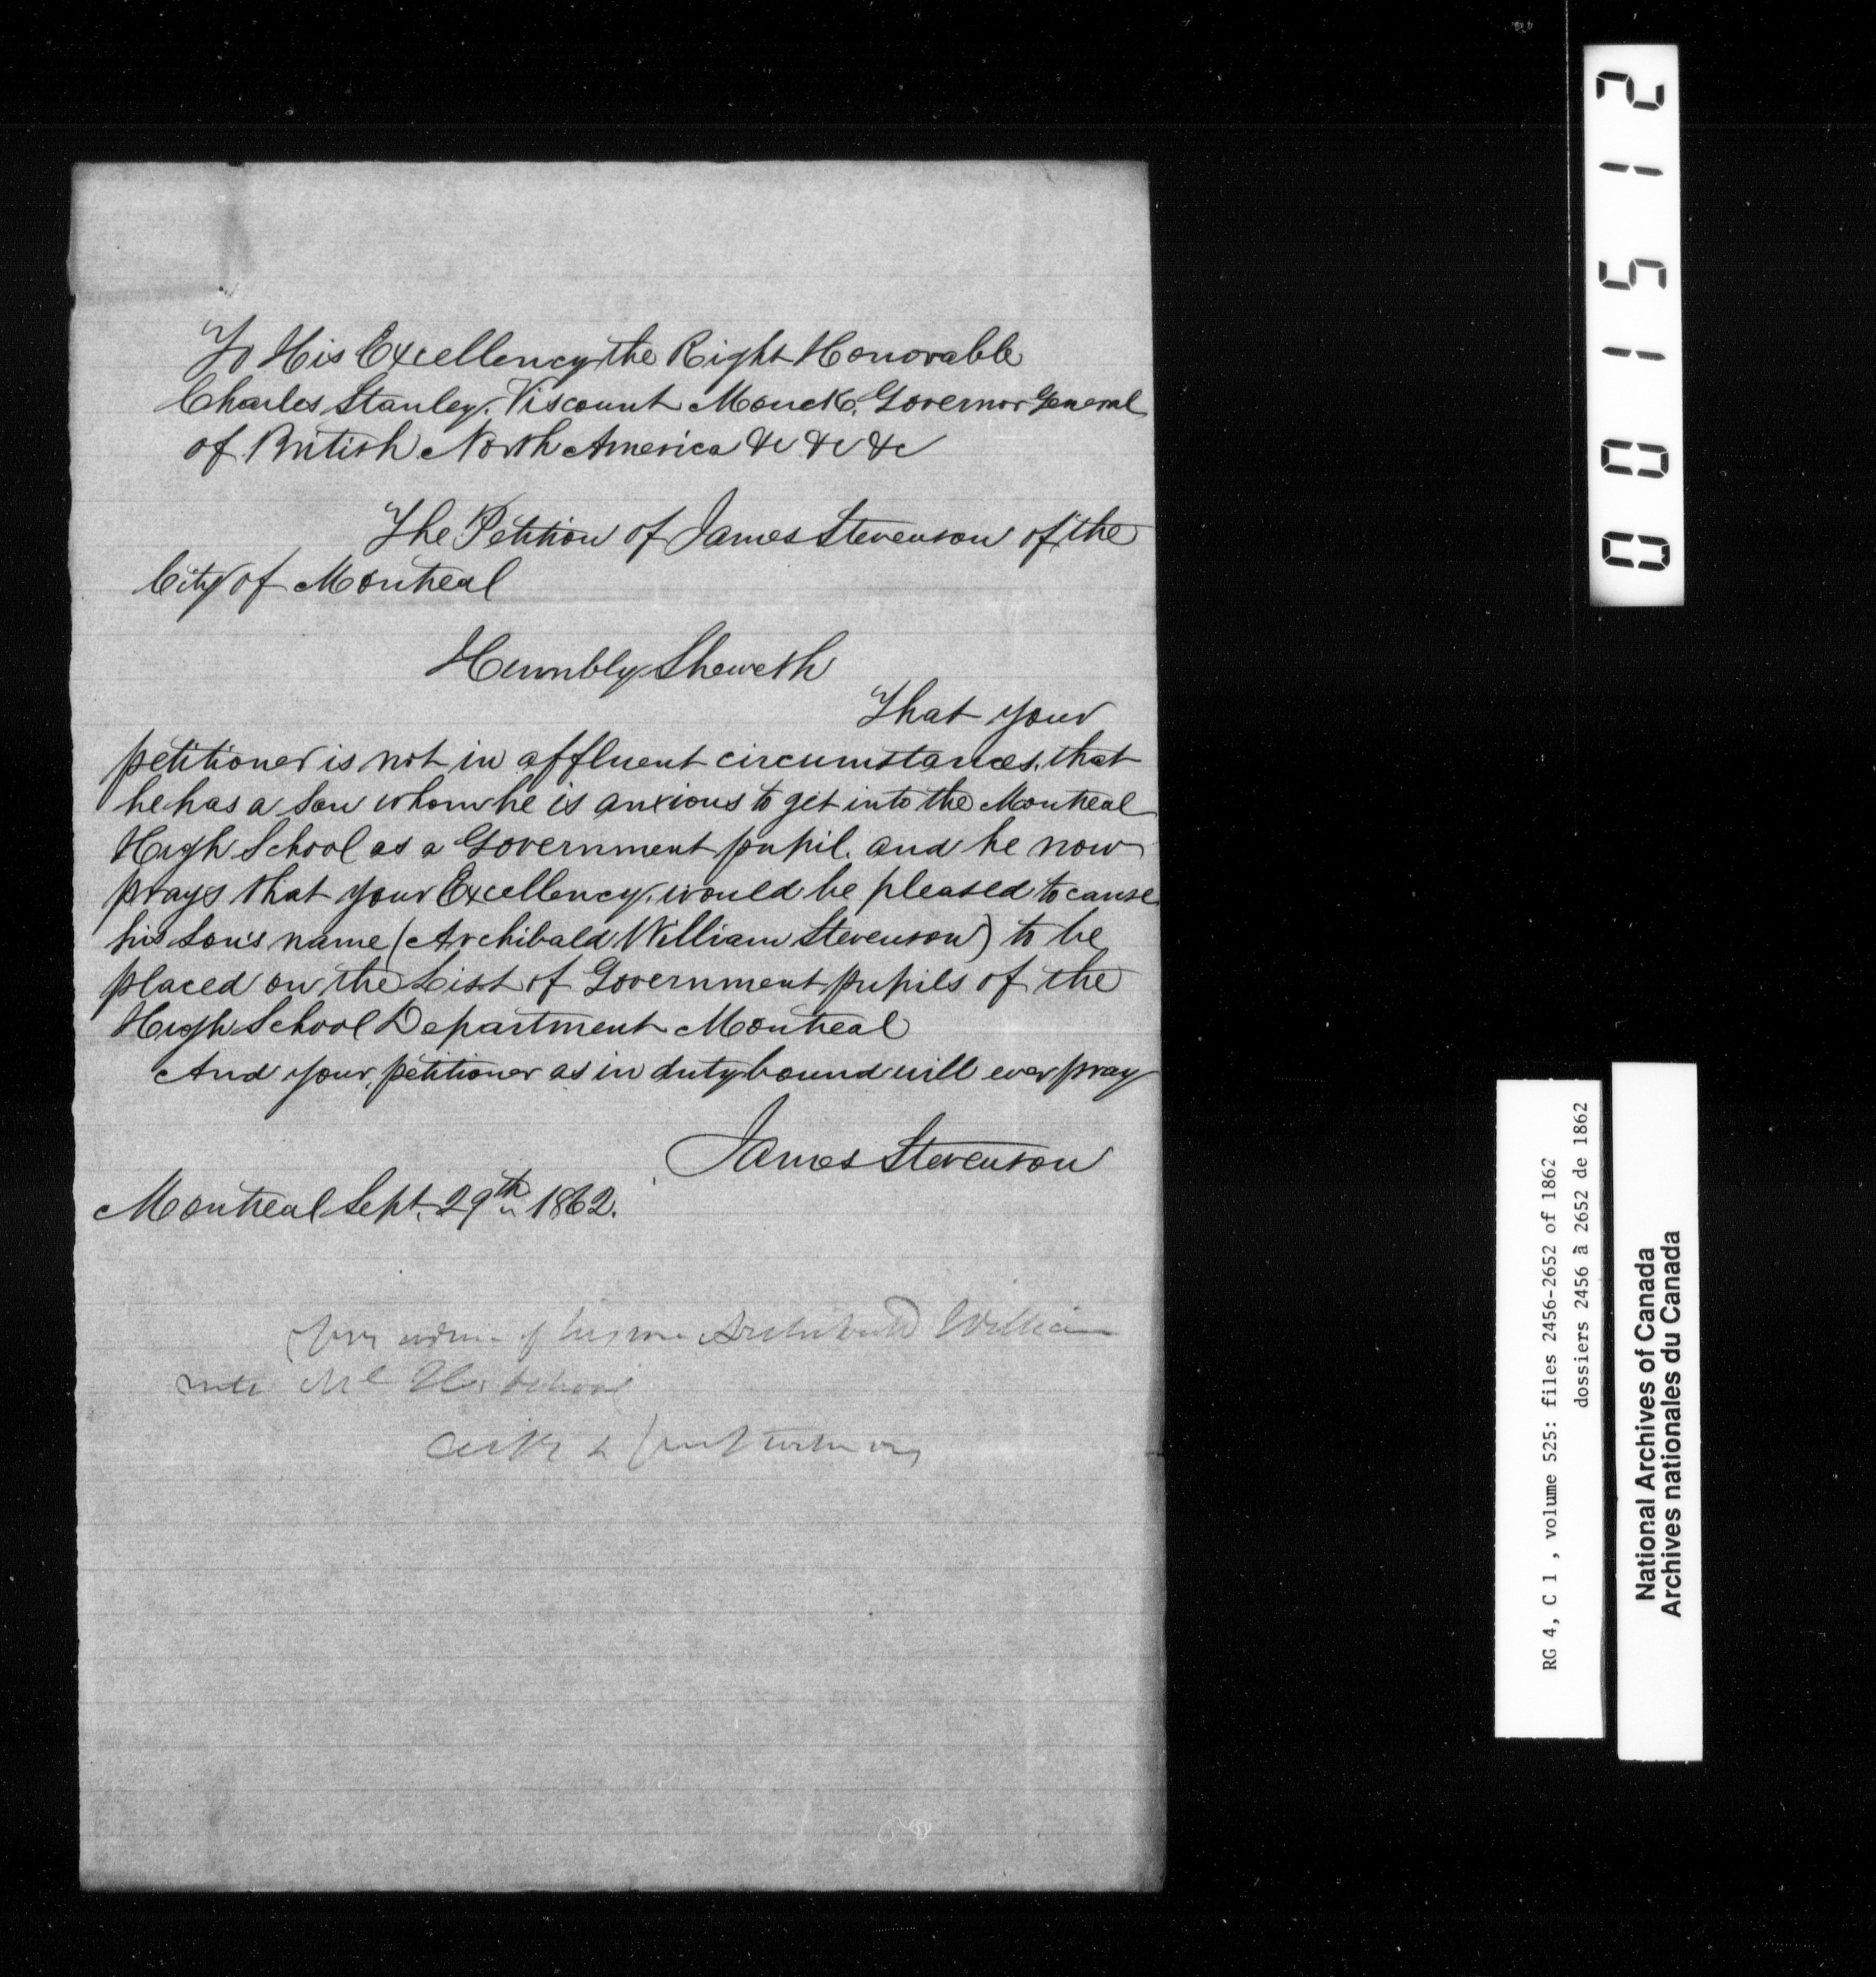 To His Excellency the Right Honorable
Charles Stanley. Viscount Monck. Governor General
of British North America &c &c &c
The Petition of James Stevenson of the
City of Montreal
Humbly Sheweth
That your
petitioner is not in affluent circumstances. that
he has a son whom he is anxious to get into the Montreal
High School as a Government pupil. and he now
prays that your Excellency. would be pleased to cause
his son's name (Archibald William Stevenson) to be
placed on the List of Government pupils of the
High School Department Montreal
And your petitioner as in duty bound will ever pray
James Stevenson
Montreal Sept. 29th 1862.
of his son Archibald William
into Ml H. School
001512
RG 4, C 1 , volume 525: files 2456-2652 of 1862
dossiers 2456 à 2652 de 1862
National Archives of Canada
Archives nationales du Canada